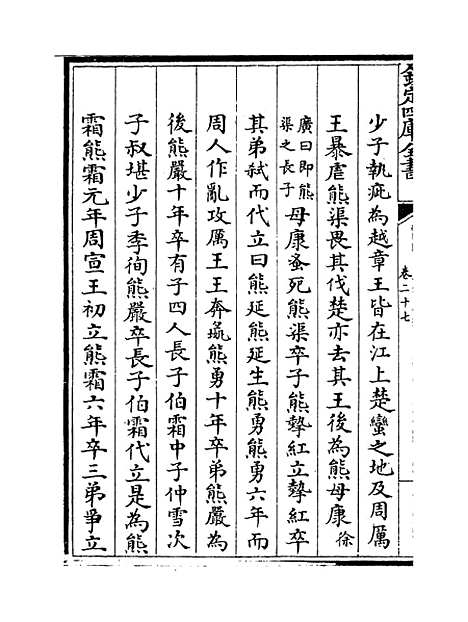 欽定四庫全書
卷二十七
少子執疵為越章王皆在江上楚蠻之地及周厲
王暴虐熊渠畏其伐楚亦去其王後為熊毋康徐
廣曰即熊渠之長子毋康蚤死熊渠卒子熊摯紅立摯紅卒
其弟弑而代立曰熊延熊延生熊勇熊勇六年而
周人作亂攻厲王王奔彘熊勇十年卒弟熊嚴為
後熊嚴十年卒有子四人長子伯霜中子仲雪次
子叔堪少子季徇熊嚴卒長子伯霜代立是為熊
霜熊霜元年周宣王初立熊霜六年卒三弟爭立